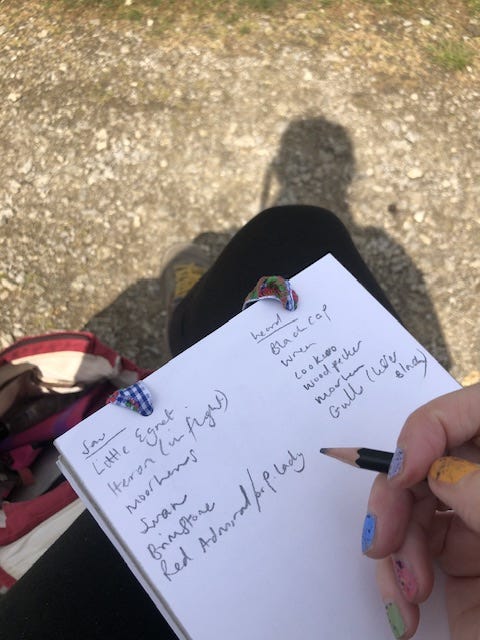 Saw
Little Egret
Heron (in flight)
Moorhens
Swan
Brimstone
Red Admiral/or p. lady
heard
Blackcap
Wren
cookoo
Woodpecker
moorhen
Gulls (